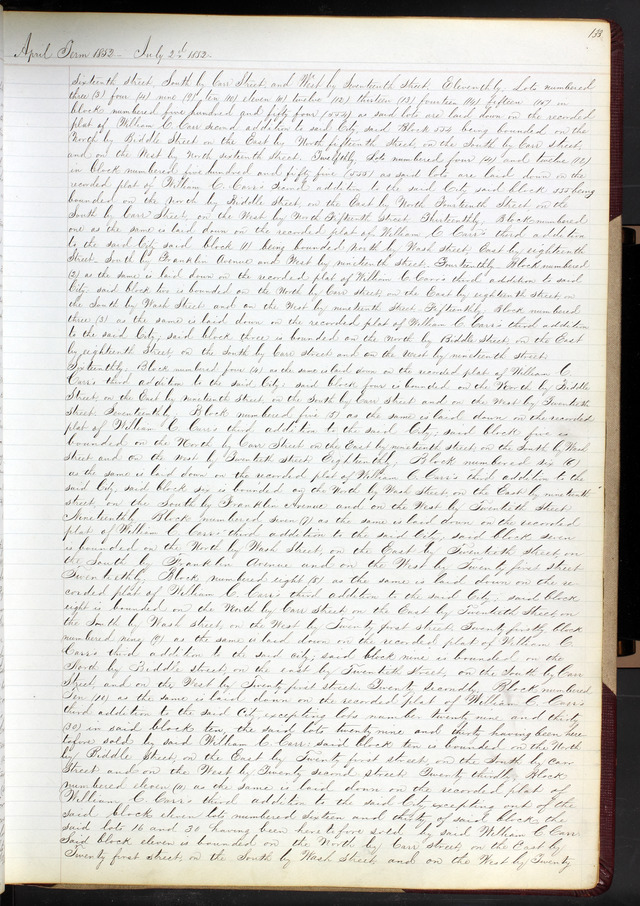 133
April Term 1852 July 2d 1852
sixteenth street, South by Carr Street and West by Seventeenth Street. Eleventhly. Lots numbered
three (3) four (4) nine (9) ten (10) eleven (11) twelve (12) thirteen (13) fourteen (14) fifteen (15) in
block numbered five hundred and fifty four (554) as said lots are laid down on the recorded
plat of William C. Carr second addition to said City said Block 554 being bounded on the
North by Biddle Street on the East by North fifteenth street, on the South by Carr street,
and on the West by North sixteenth street. Twelfthly Lots numbered four (4) and twelve (12)
in block numbered five hundred and fifty five (555) as said lots are laid down on the
recorded plat of William C. Carr's second addition to the said City said block 555 being
bounded on the North by Biddle Street, on the East by North Fourteenth Street on the
South by Carr Street, on the West by North Fifteenth Street. Thirteenthly. Block numbered
one as the same is laid down on the recorded plat of William C. Carr's third addition
to the said City said block (1) being bounded North by Wash Street East by eighteenth
Street South by Franklin Avenue and West by nineteenth street. Fourteenthly. Block numbered
(2) as the same is laid down on the recorded plat of William C. Carr's third addition to said
City. said block two is bounded on the North by Carr street, on the East by eighteenth street, on
the South by Wash Street and on the West by nineteenth Street. Fifteenthly. Block numbered
three (3) as the same is laid down on the recorded plat of William C. Carr's third addition
to the said City, said block three is bounded on the north by Biddle Street, on the East
by eighteenth Street, on the South by Carr street and on the West by nineteenth street.
Sixteenthly. Block numbered four (4) as the same is laid down on the recorded plat of William C.
Carr's third addition to the said City. said block four is bounded on the North by Biddle
Street, on the East by nineteenth Street, on the South by Carr Street and on the West by Twentieth
Street. Seventeenthly. Block numbered five (5) as the same is laid down on the recorded
plat of William C. Carr's third addition to the said City, said block five is
bounded on the North by Carr Street on the East by nineteenth street, on the South by Wash
street and on the West by Twentieth Street. Eighteenthly, Block numbered six (6)
as the same is laid down on the recorded plat of William C. Carr's third addition to the
said City, said block six is bounded on the North by Wash Street, on the East by nineteenth
street, on the South by Franklin Avenue and on the West by Twentieth Street.
Nineteenthly Block numbered seven (7) as the same is laid down on the recorded
plat of William C. Carr's third addition to the said City, said block seven
is bounded on the North by Wash Street, on the East by Twentieth Street, on
the South by Franklin Avenue and on the West by Twenty first street.
Twentiethly Block numbered eight (8) as the same is laid down on the re-
corded plat of William C. Carr's third addition to the said City; said block
eight is bounded on the North by Carr Street on the East by Twentieth Street on
the South by Wash street, on the West by Twenty first street. Twenty firstly block
numbered nine (9) as the same is laid down on the recorded plat of William C.
Carr's third addition to the said city, said block nine is bounded on the
North by Biddle street, on the east by Twentieth Street, on the South by Carr
Street, and on the West by Twenty first street. Twenty secondly. Block numbered
Ten (10) as the same is laid down on the recorded plat of William C. Carr's
third addition to the said City excepting lots number twenty nine and thirty
(30) in said block ten, the said lots twenty nine and thirty having been here
tofore sold by said William C. Carr said block ten is bounded on the North
by Biddle street, on the East by Twenty first street, on the South by Carr
Street and on the West by Twenty second street. Twenty thirdly, Block
numbered eleven (11) as the same is laid down on the recorded plat of
William C. Carr's third addition to the said City excepting out of the
said block eleven lots numbered sixteen and thirty of said block, the
said lots 16 and 30 having been heretofore sold by said William C. Carr
Said block eleven is bounded on the North by Carr street, on the East by
Twenty first street, on the South by Wash Street and on the West by Twenty